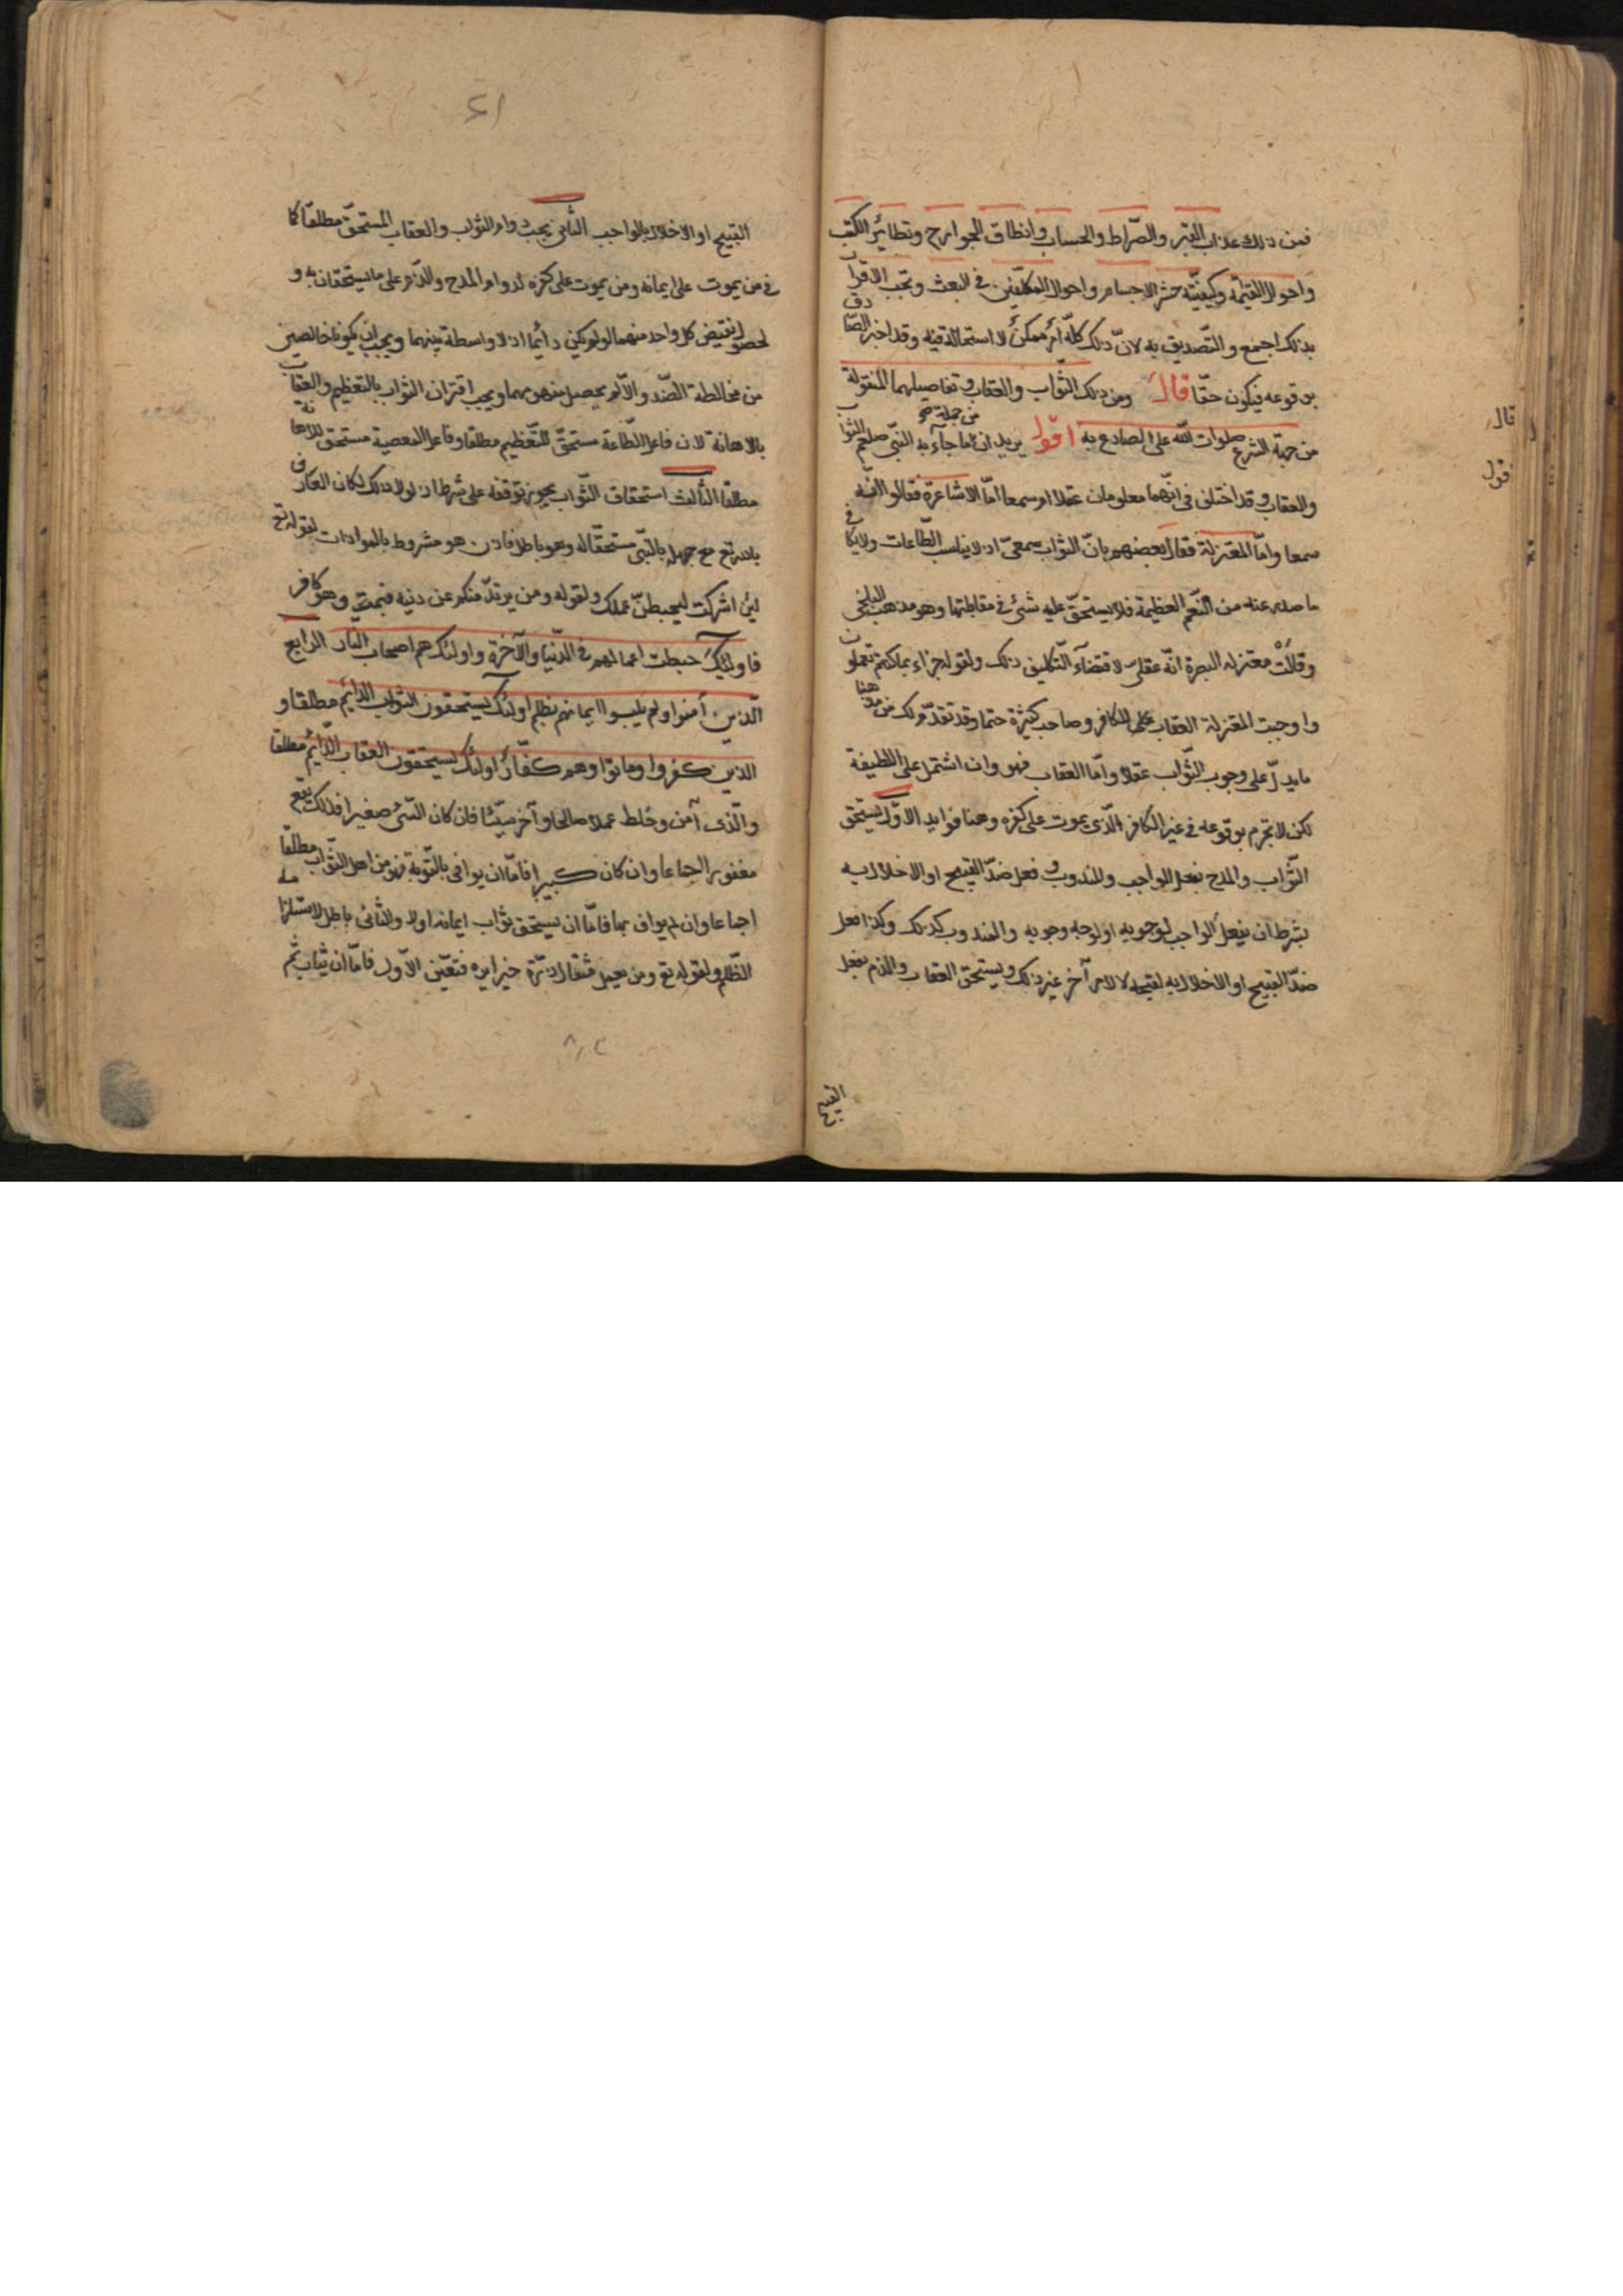 فمن ذلك عذاب القبر والصّراط والحساب وانطاق الجوارح وتطائر الكتب
واحوال القيمة وكيفيّة حشر الاجسام واحوال المكلّفين فى البعث ويجب الاقرار
بذلك اجمع والتّصديق به لانّ ذلك كلّه امر ممكن لا استحالة فيه وقد اخبر الصّادق
بوقوعه فيكون حقّا قال ومن ذلك الثّواب والعقاب وتفاصيلهما المنقولة
من جهة الشرع صلوات اللّه على الصادع به اقول يريد انّ من جملة صح ما جآء به النّبى صلعم الثواب
والعقاب وقد اختلف فى انّهما معلومان عقلا ام سمعا امّا الاشاعرة فقالوا انّه
سمعا وامّا المعتزلة فقال بعضهم بانّ الثواب سمعىّ اذ لا يناسب الطّاعات ولا يكافى
ما صدر عنه من النّعم العظيمة فلا يستحقّ عليه شئ فى مقابلتها وهو مذهب البلخى
وقالت معتزلة البصرة انّه عقلى لاقتضآء التّكليف ذلك ولقوله جزاء بما كنتم تعملون
واوجبت المعتزلة العقاب على الكافر وصاحب كبيرة حتما وقد تقدّم لك من مذهبنا
ما يدلّ على وجوب الثّواب عقلا وامّا العقاب فهو وان اشتمل على اللطيفة
لكن لا نجزم بوقوعه فى غير الكافر الّذى يموت على كفره وهنا فوايد الاوّل يستحق
الثّواب والمدح بفعل الواجب والمندوب وفعل ضدّ القبيح او الاخلال به
بشرط ان يفعل الواجب لوجوبه او لوجه وجوبه والمندوب كذلك وكذا فعل
ضدّ القبيح او الاخلال به لقبحه لا لامر آخر غير ذلك ويستحق العقاب والذم بفعل
القبيح
قال
قول
٤١
القبيح او الاخلال بالواجب الثّانى يجب دوام الثواب والعقاب المستحقّ مطلقا كما
فى من يموت على ايمانه ومن يموت على كفره لدوام المدح والذّم على ما يستحقان به و
لحصول نقيض كل واحد منهما لو لم يكن دائما اذ لا واسطة بينهما ويجب ان يكونا خالصين
من مخالطة الضّد والّا لم يحصل مفهومهما ويجب اقتران الثواب بالتعظيم والعقاب
بالاهانة لان فاعل الطّاعة مستحقّ للتّعظيم مطلقا وفاعل المعصية مستحق للاهانة
مطلقا الثّالث استحقاق الثّواب يجوز توقفه على شرط اذ لولا ذلك لكان العارف
باللّه تع مع جهله بالنّبى مستحقّا له وهو باطل فاذن هو مشروط بالموافات لقوله تع
لئن اشركت ليحبطنّ عملك ولقوله ومن يرتدّ منكم عن دينه فيمت وهو كافر
فاولئك حبطت اعمالهم فى الدّنيا والآخرة واولئك هم اصحاب النار الرّابع
الّذين آمنوا ولم يلبسوا ايمانهم بظلم اولئك يستحقون الثواب الدّائم مطلقا و
الذين كفروا وماتوا وهم كفّار اولئك يستحقون العقاب الدّائم مطلقا
والّذى آمن وخلط عملا صالحا وآخر سيّئا فان كان السّئ صغيرا فذلك يقع
مغفورا اجماعا وان كان كبيرا فامّا ان يوافى بالتّوبة فهو من اهل الثّواب مطلقا
اجماعا وان لم يواف بها فامّا ان يستحق ثواب ايمانه اولا والثانى باطل لاستلزامه
الظّلم ولقوله تع ومن يعمل مثقال ذرّة خيرا يره فتعيّن الاوّل فامّا ان يثاب ثم